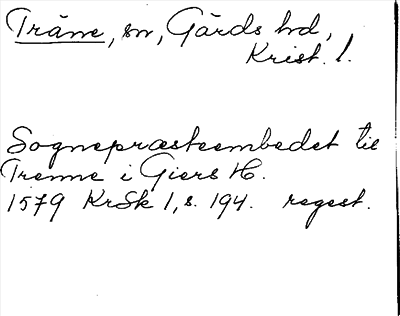 Träne, sn, Gärds hd,
Krist. l.
Sognepræsteembedet til
Trenne i Giers H.
1579 KrSk 1, s. 194. regest.